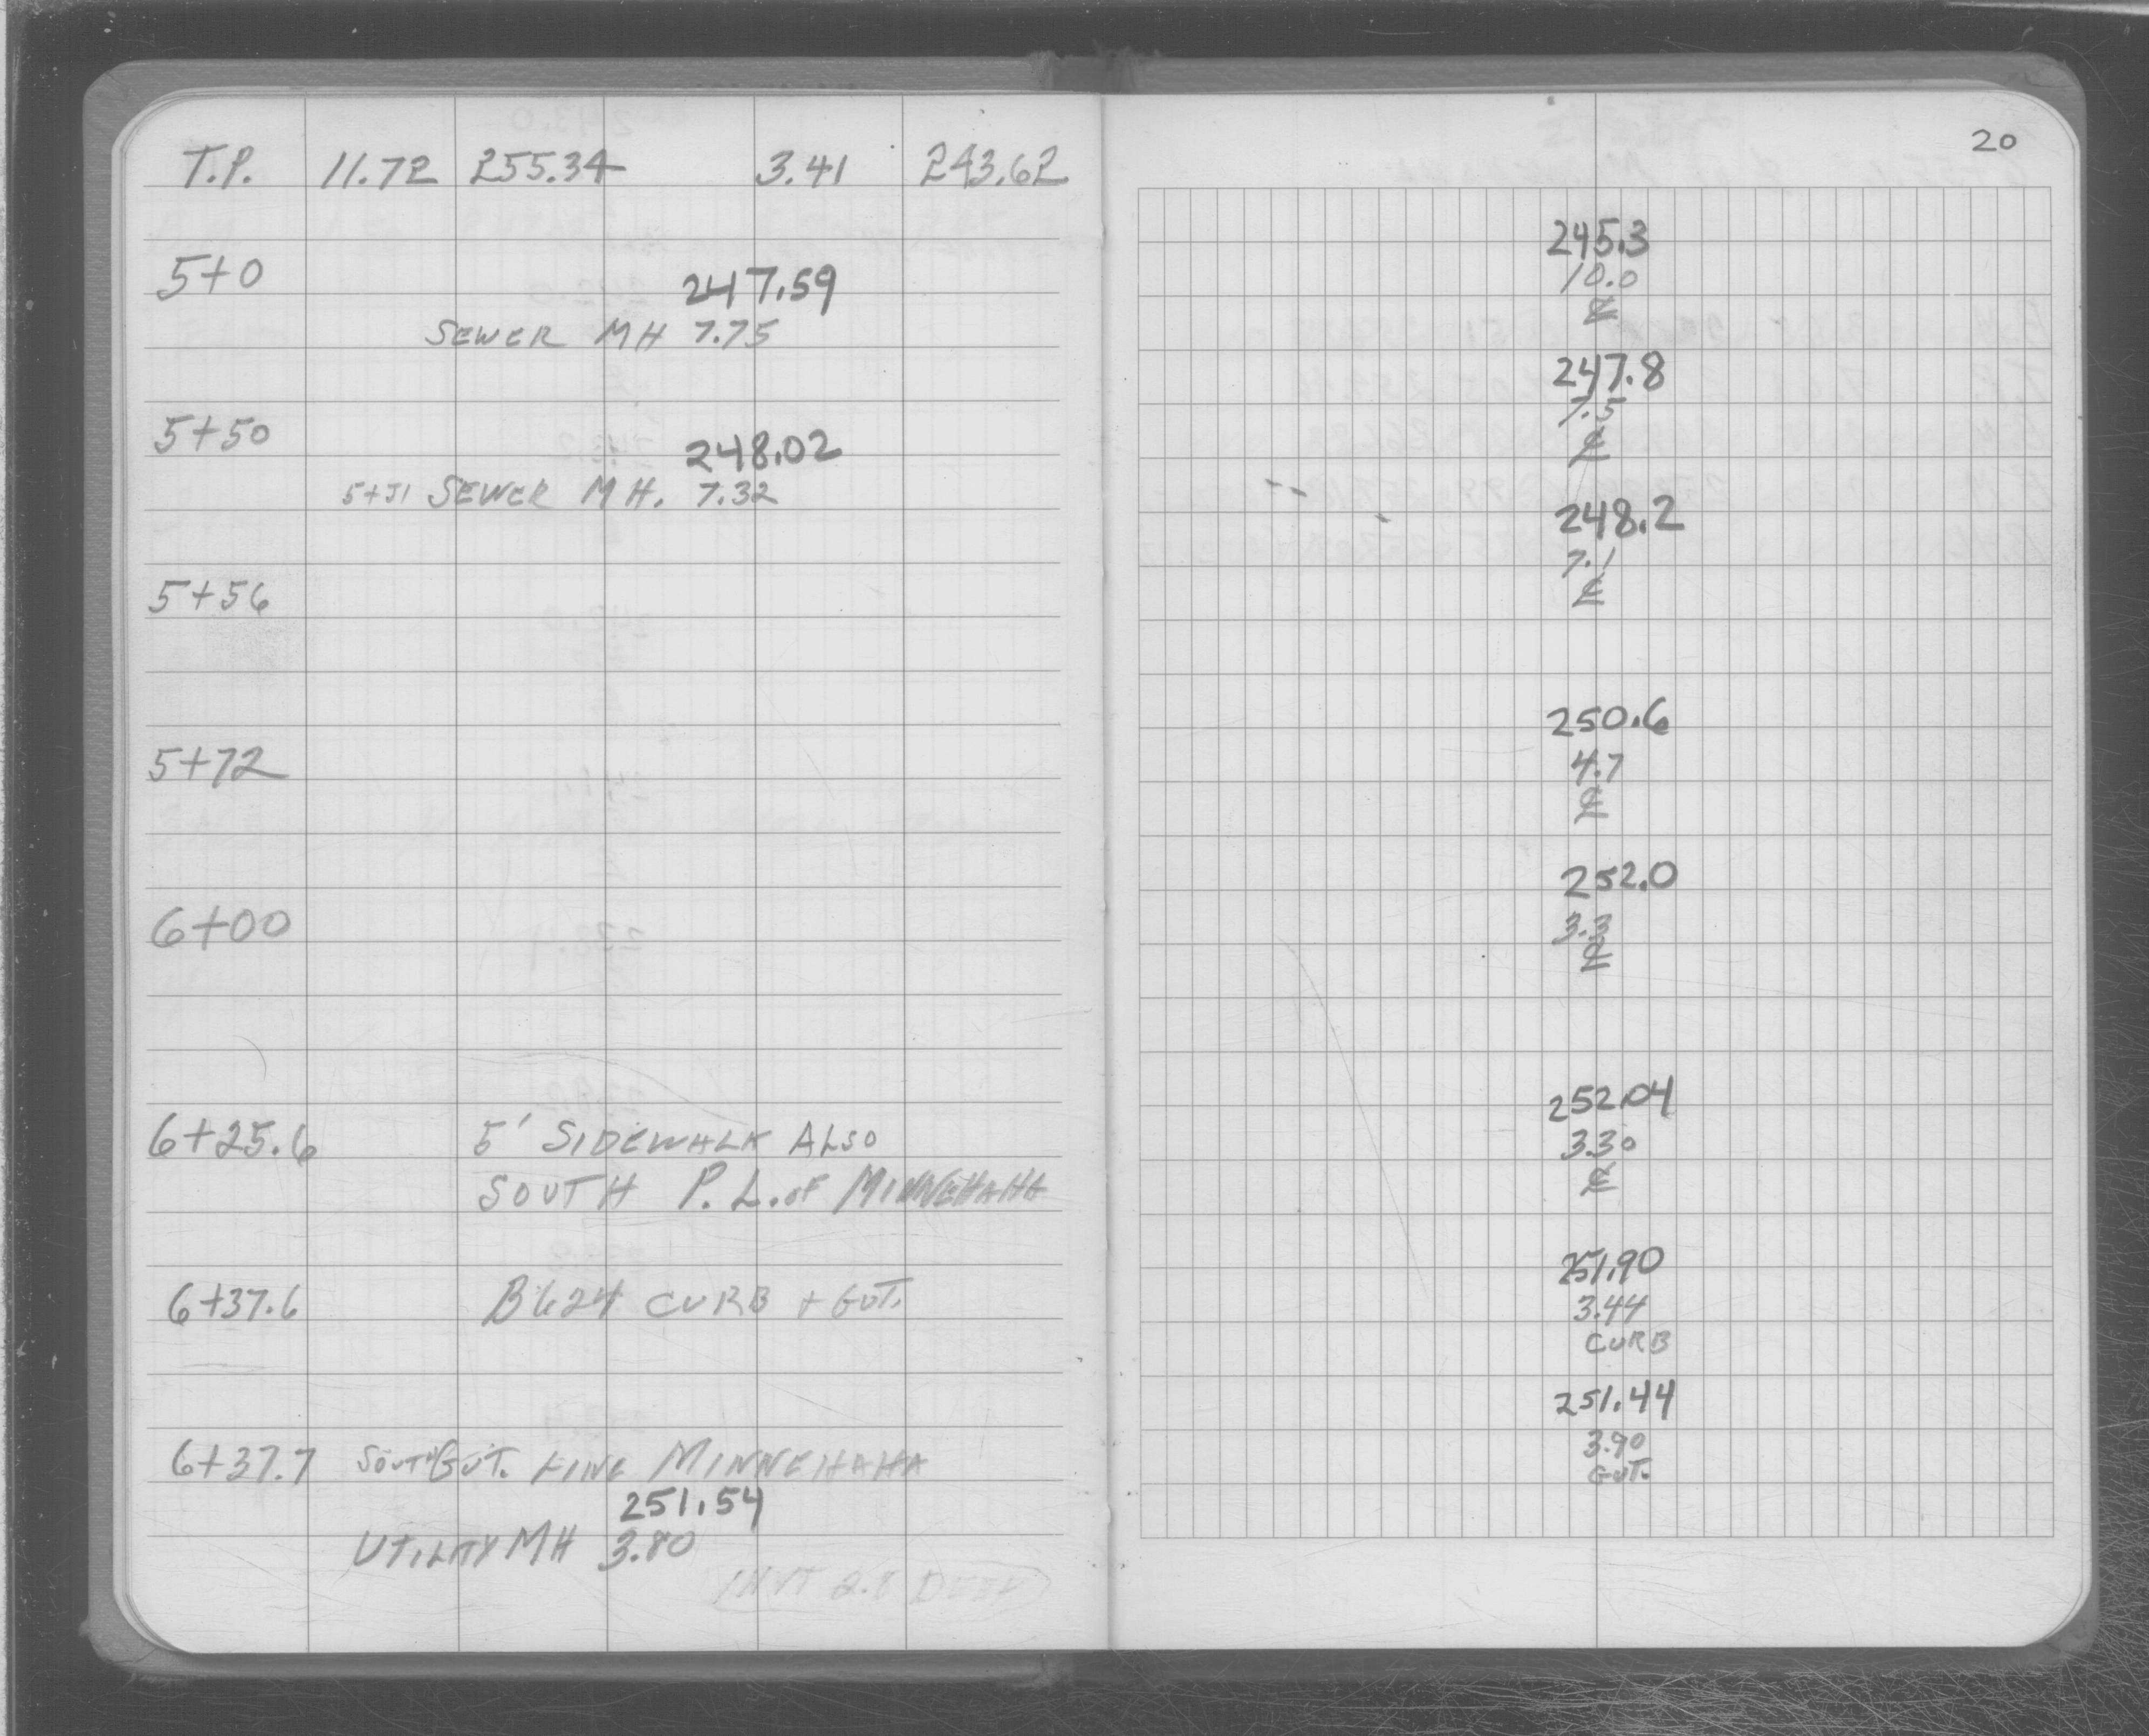 T.P. 11.72 255.34 3.41 243.62
5+0
247.59
SEWER MH 7.75
5+50
248.02
5+51 SEWER MH. 7.32
5+56
5+72
6+00
6+25.6 5' SIDEWALK ALSO
SOUTH P.L. OF MINNEHAHA
6+37.6 B624 CURB + GUT.
6+37.7 SOUTH GUT. LINE MINNEHAHA
251.54
UTILITY MH 3.80
INVT 2.8 DEEP
20
245.3
10.0
℄
247.8
7.5
℄
248.2
7.1
℄
250.6
4.7
℄
252.0
3.3
℄
252.04
3.30
℄
251.90
3.44
CURB
251.44
3.90
GUT.